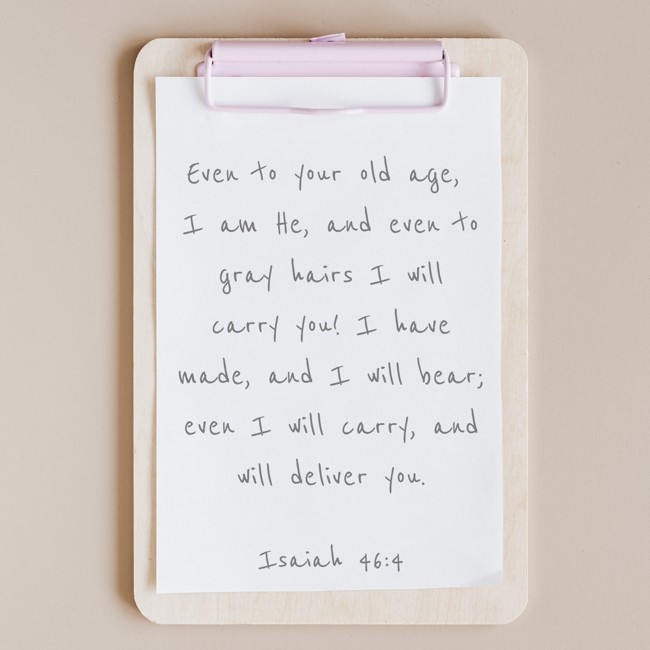 Even to your old age,
I am He, and even to
gray hairs I will
carry you! I have
made, and I will bear;
even I will carry, and
will deliver you.
Isaiah 46:4